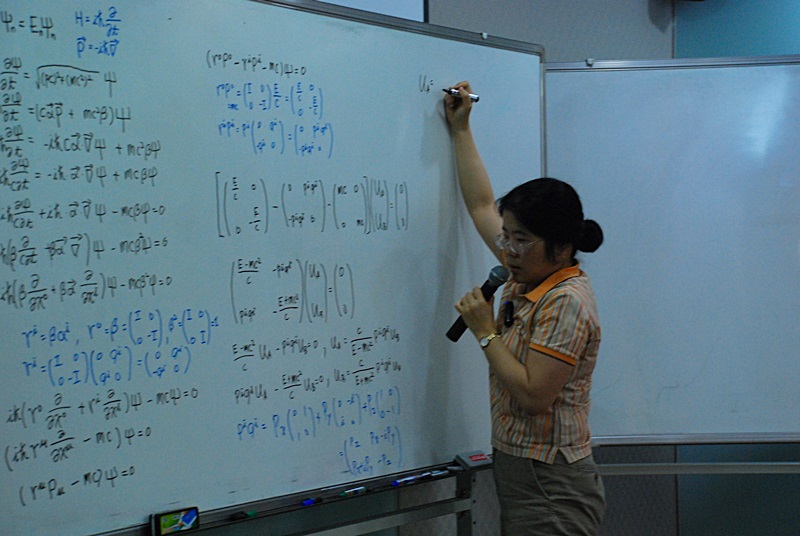 ψₙ = Eₙψₙ
H = iħ ∂/∂t
p⃗ = -iħ∇⃗
∂ψ/∂t = √((pc)²+(mc²)²) ψ
∂ψ/∂t = (cα⃗p⃗ + mc²β)ψ
ħ∂ψ/∂t = -iħcα⃗∇⃗ψ + mc²βψ
iħ∂ψ/c∂t = -iħα⃗∇⃗ψ + mcβψ
iħ∂ψ/c∂t + iħα⃗∇⃗ψ - mcβψ = 0
iħ(β ∂/c∂t + βα⃗∇⃗)ψ - mcβ²ψ = 0
iħ(β ∂/∂x⁰ + βα⃗ ∂/∂xⁱ)ψ - mcβ²ψ = 0
rⁱ = βαⁱ, r⁰ = β = (I 0 / 0 -I), β² = (I 0 / 0 I) = 1
rⁱ = (I 0 / 0 -I)(0 σⁱ / σⁱ 0) = (0 σⁱ / -σⁱ 0)
iħ(r⁰ ∂/∂x⁰ + rⁱ ∂/∂xⁱ)ψ - mcψ = 0
(iħr^μ ∂/∂x^μ - mc)ψ = 0
(r^μ P_μ - mc)ψ = 0
(r⁰p⁰ - rⁱpⁱ - mc)ψ = 0
r⁰p⁰ = (I 0 / 0 -I) E/c = (E/c 0 / 0 -E/c)
rⁱpⁱ = pⁱ(0 σⁱ / -σⁱ 0) = (0 pⁱσⁱ / -pⁱσⁱ 0)
[(E/c 0 / 0 E/c) - (0 pⁱσⁱ / -pⁱσⁱ 0) - (mc 0 / 0 mc)](U_A / U_B) = (0 / 0)
((E-mc²)/c -pⁱσⁱ / pⁱσⁱ -(E+mc²)/c)(U_A / U_B) = (0 / 0)
(E-mc²)/c U_A - pⁱσⁱU_B = 0, U_A = c/(E-mc²) pⁱσⁱU_B
pⁱσⁱU_A - (E+mc²)/c U_B = 0, U_B = c/(E+mc²) pⁱσⁱU_A
pⁱσⁱ = Px(0 1 / 1 0) + Py(0 -i / i 0) + Pz(1 0 / 0 -1)
= (Pz Px-iPy / Px+iPy -Pz)
U_A =